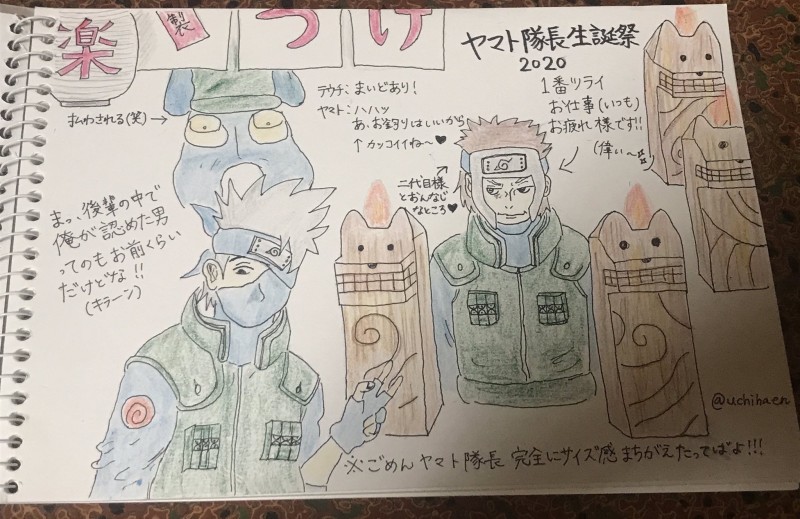 楽
製
つけ
ヤマト隊長生誕祭
2020
テウチ:まいどあり!
ヤマト:ハハッ
あ、お釣りはいいから
↑カッコイイね〜♥
払わされる(笑)→
1番ツライ
お仕事(いつも)
お疲れ様です!!
(偉い〜
二代目様
とおんなじ
なところ♥
まぁ、後輩の中で
俺が認めた男
ってのもお前くらい
だけどな!!
(キラーン)
@uchihaen
※ごめんヤマト隊長 完全にサイズ感まちがえたってばよ!!!